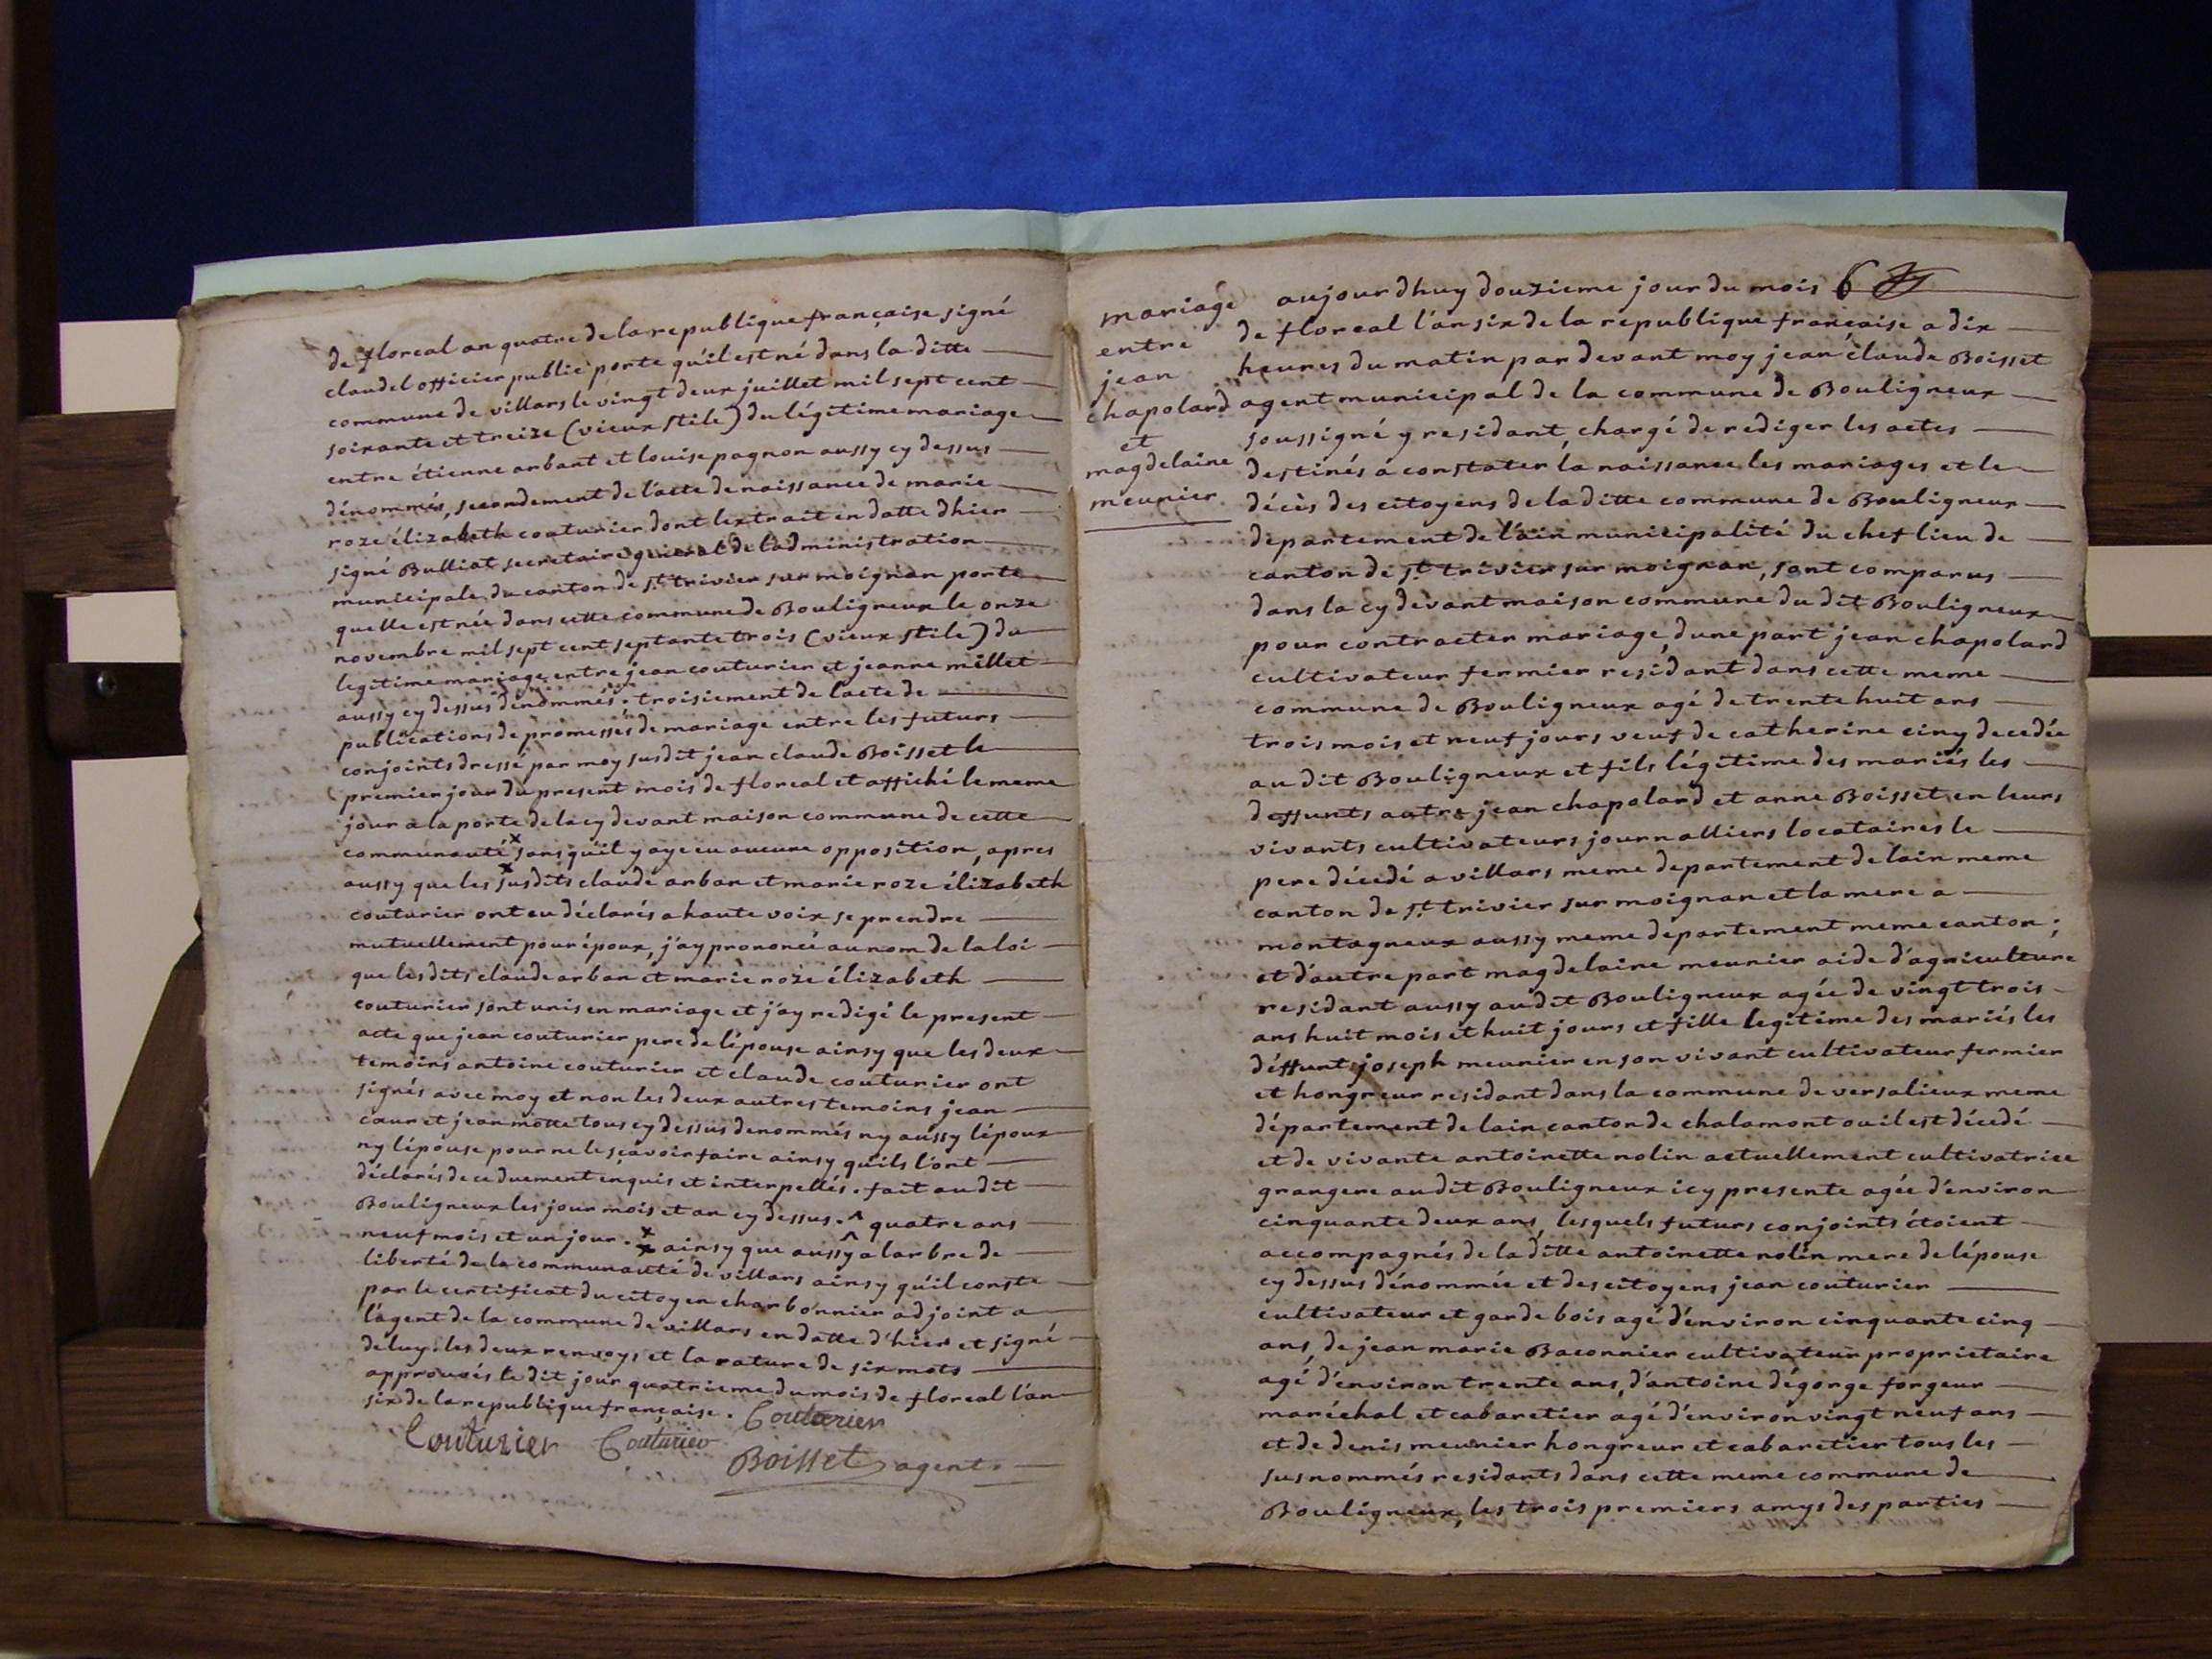 de floreal an quatre de la republique française signé
claudel officier public porte qu'il est né dans la ditte
commune de villars le vingt deux juillet mil sept cent
soixante et treize (vieux stile) du légitime mariage
entre étienne arbant et louise pagnon aussy cy dessus
dénommés, secondement de l'acte de naissance de marie
roze élizabeth couturier dont lextrait en datte dhier
signé Bulliat secretaire général de ladministration
municipale du canton de st trivier sur moignan porte
quelle est née dans cette commune de Bouligneux le onze
novembre mil sept cent septante trois (vieux stile) du
legitime mariage entre jean couturier et jeanne millet
aussy cy dessus dénommés. troisiement de lacte de
publications de promesses de mariage entre les futurs
conjoints dressé par moy susdit jean claude Boisset le
premier jour du present mois de floreal et affiché le meme
jour a la porte de la cy devant maison commune de cette
communauté x sans quil y aye eu aucune opposition, apres
aussy que les x susdits claude arban et marie roze élizabeth
couturier ont eu déclarés a haute voix se prendre
mutuellement pour époux, j'ay prononcé au nom de la loi
que les dits claude arban et marie roze élizabeth
couturier sont unis en mariage et j'ay redigé le present
acte que jean couturier pere de l'épouse ainsy que les deux
temoins antoine couturier et claude couturier ont
signés avec moy et non les deux autres temoins jean
cœur et jean motte tous cy dessus denommés ny aussy lépoux
ny lépouse pour ne le sçavoir faire ainsy qu'ils l'ont
déclarés de ce duement enquis et interpellés. fait au dit
Bouligneux les jour mois et an cy dessus. ^ quatre ans
neuf mois et un jour. x ainsy que aussy a larbre de
liberté de la communauté de villars ainsy qu'il conste
par le certificat du citoyen charbonnier adjoint a
l'agent de la commune de villars en datte d'hier et signé
de luy. les deux renvoys et la rature de six mots
approuvés le dit jour quatrieme du mois de floreal l'an
six de la republique française. Couturier
Couturier Couturier
Boisset agent.
mariage
entre
jean
chapolard
et
magdelaine
meunier
6
aujourdhuy douzieme jour du mois
de floreal l'an six de la republique française a dix
heures du matin par devant moy jean claude Boisset
agent municipal de la commune de Bouligneux
soussigné y residant, chargé de rediger les actes
destinés a constater la naissance les mariages et le
décès des citoyens de la ditte commune de Bouligneux
departement de l'ain municipalité du chef lieu de
canton de st trivier sur moignan, sont comparus
dans la cy devant maison commune du dit Bouligneux
pour contracter mariage, dune part jean chapolard
cultivateur fermier residant dans cette meme
commune de Bouligneux agé de trente huit ans
trois mois et neuf jours veuf de catherine ciny decedée
au dit Bouligneux et fils légitime des mariés les
deffunts autre jean chapolard et anne Boisset en leurs
vivants cultivateurs journalliers locataires le
pere décedé a villars meme departement de lain meme
canton de st trivier sur moignan et la mere a
montagneux aussy meme departement meme canton;
et d'autre part magdelaine meunier aide d'agriculture
residant aussy au dit Bouligneux agée de vingt trois
ans huit mois et huit jours et fille legitime des mariés les
déffunt joseph meunier en son vivant cultivateur fermier
et hongreur residant dans la commune de versalieux meme
département de lain canton de chalamont ou il est décedé
et de vivante antoinette nolin actuellement cultivatrice
grangere au dit Bouligneux icy presente agée d'environ
cinquante deux ans, lesquels futurs conjoints étoient
accompagnés de la ditte antoinette nolin mere de lépouse
cy dessus dénommée et des citoyens jean couturier
cultivateur et garde bois agé d'environ cinquante cinq
ans, de jean marie Baconnier cultivateur proprietaire
agé d'environ trente ans, d'antoine dégorge forgeur
maréchal et cabaretier agé d'environ vingt neuf ans
et de denis meunier hongreur et cabaretier tous les
susnommés residants dans cette meme commune de
Bouligneux, les trois premiers amys des parties